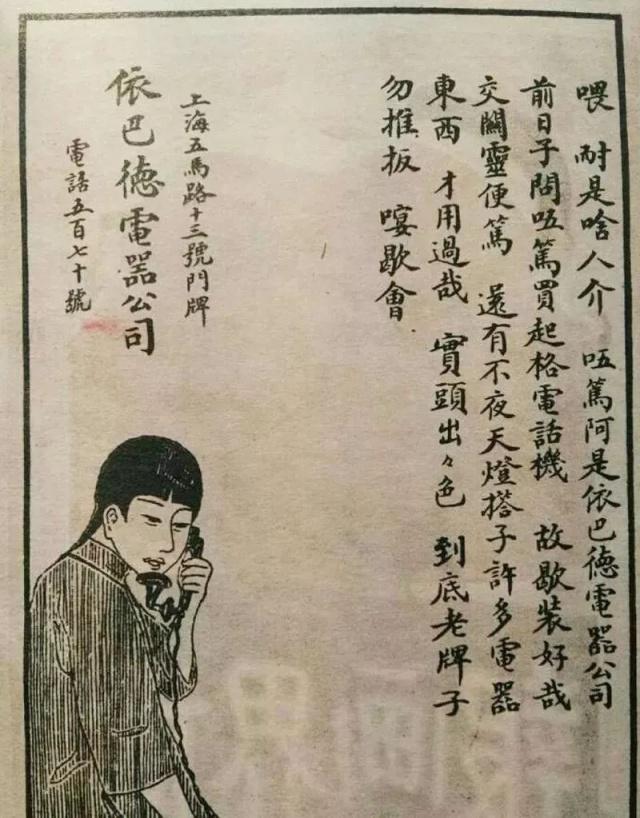 喂 耐是啥人介 㕶篤阿是依巴德電器公司
前日子問㕶篤買起格電話機 故歇装好哉
交關靈便篤 還有不夜天燈搭子許多電器
東西 才用過哉 實頭出々色 到底老牌子
勿推扳 嗄歇會
上海五馬路十三號門牌
依巴德電器公司
電話五百七十號